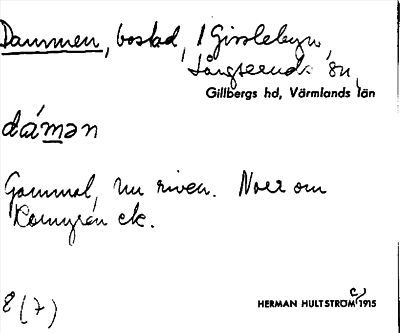 Dammen, bostad, 1 Gisslebyn,
Långseruds sn
Gillbergs hd, Värmlands län
dámǝn
Gammal, nu riven. Norr om
ek.
8 (7)
HERMAN HULTSTRÖM 1915